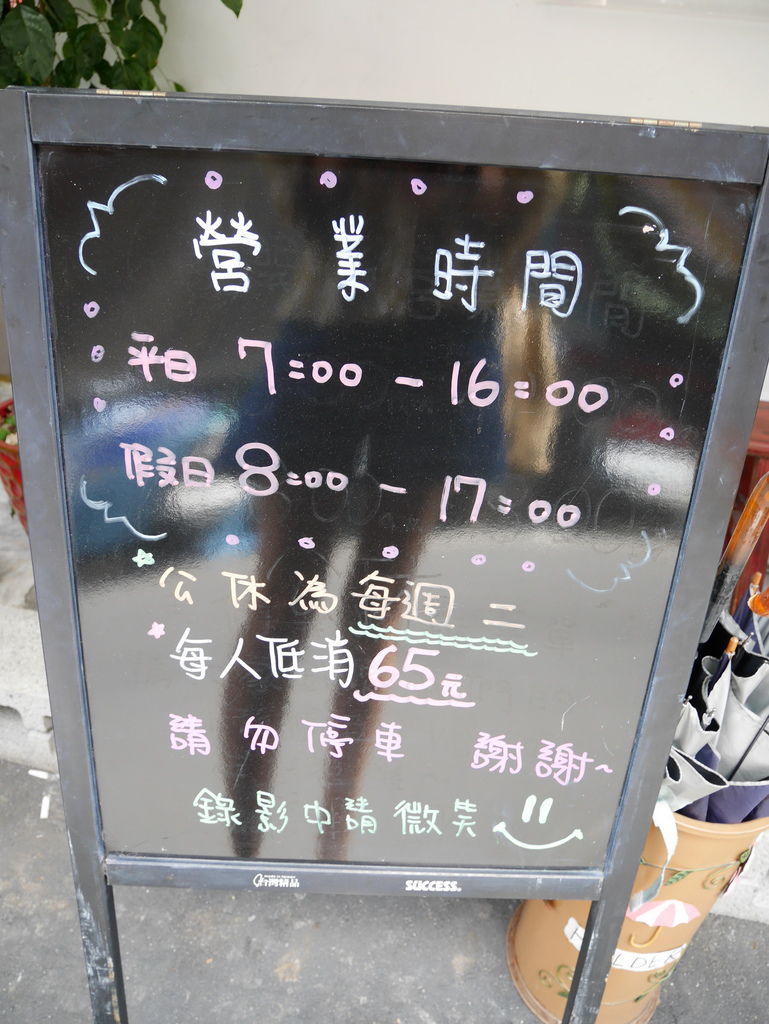 營業時間
平日 7:00 - 16:00
假日 8:00 - 17:00
公休為每週二
每人低消65元
請勿停車 謝謝~
錄影中請微笑
台灣精品 SUCCESS.